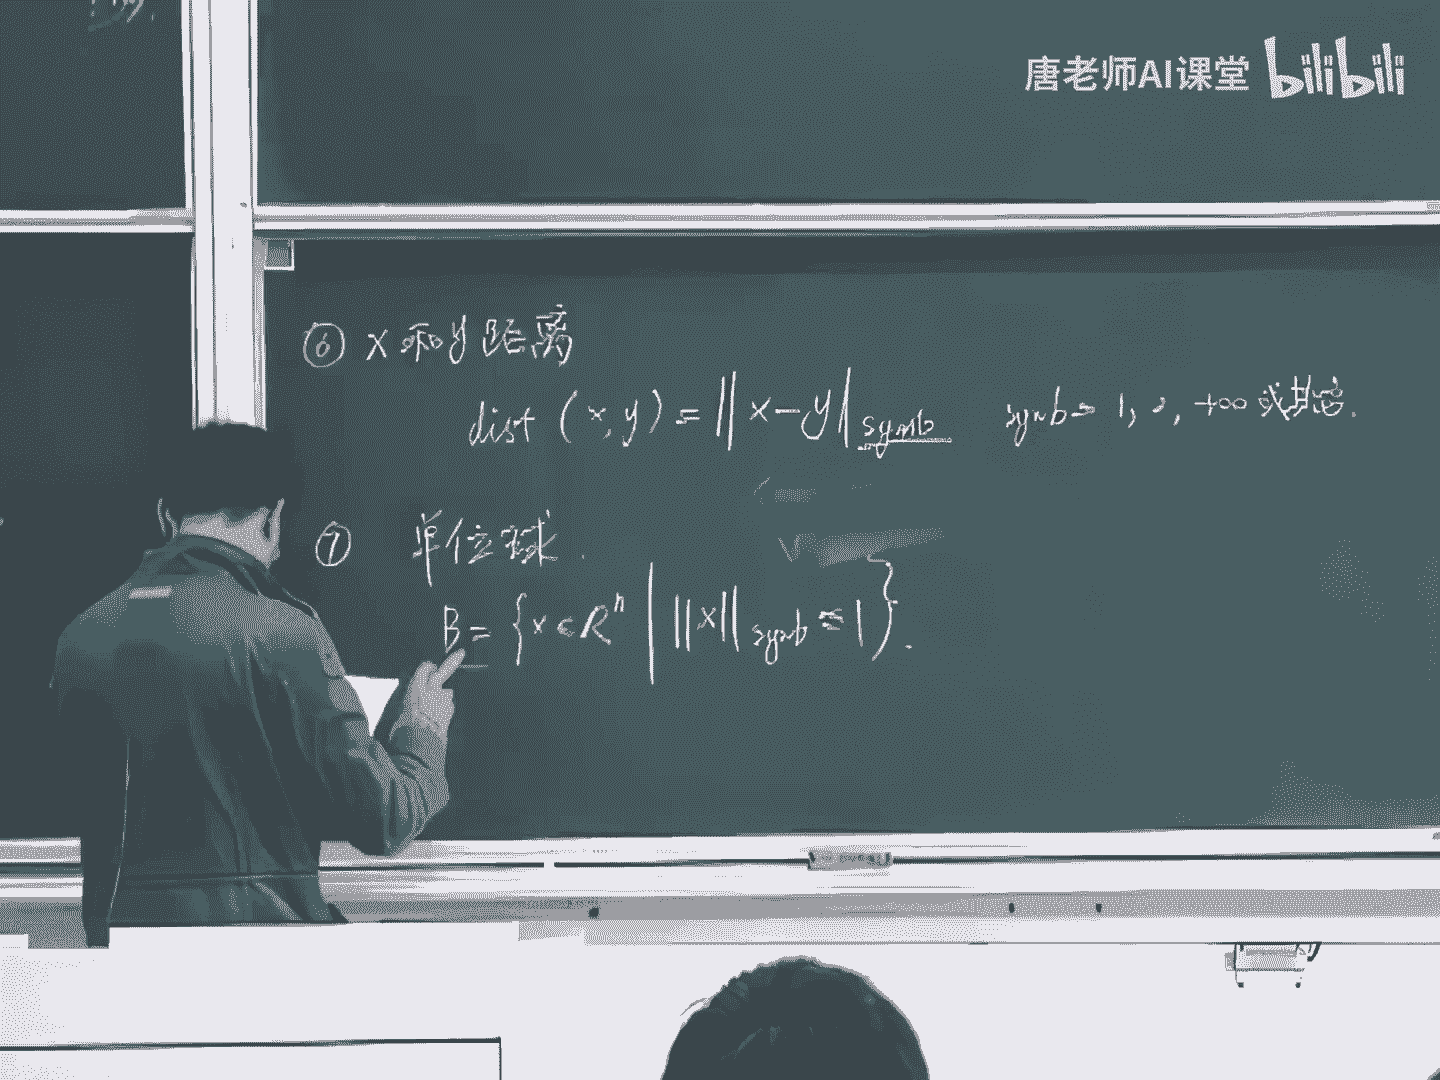 唐老师AI课堂 bilibili
⑥ x和y距离
dist (x, y) = ‖x-y‖symb symb = 1, 2, +∞ 或其它.
⑦ 单位球.
B = {x ∈ Rⁿ | ‖x‖symb ≤ 1}.